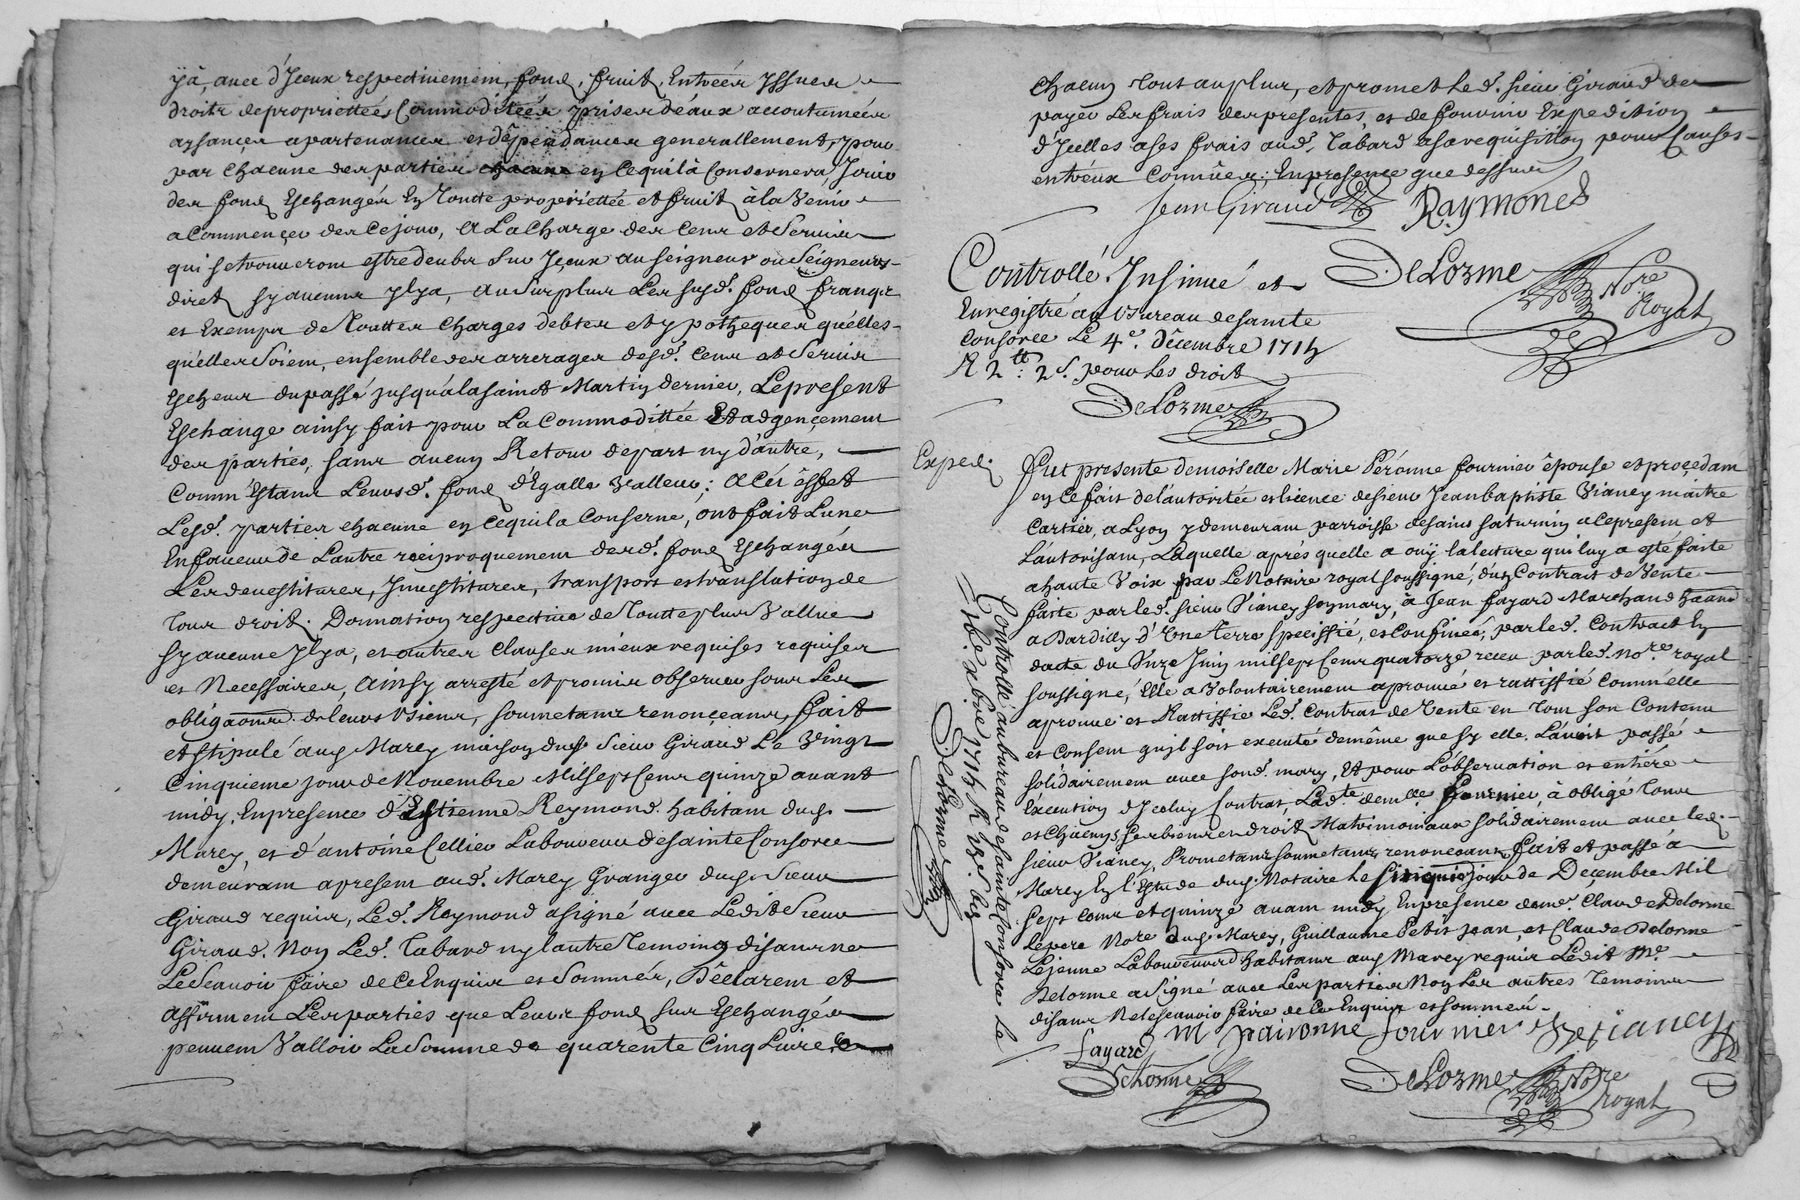 yà, avec d'Jceux respectivement, fond, fruit, Entréés yssues
droits de propriettées Commoditéés prises d'éaux accoutuméés
aysances apartenances et dêpendances generallement, pour
par chacune des parties en Cequil à Consernera Joüir
des fond Eschangés En Toutte propriettéé et fruit à la Venir
a Commencer des ce jour, A La Charge des Cens et Servis
qui se trouveront estre deubs Sur Jceux au Seigneur ou Seigneurs
direct sy aucuns ylya, au Surplus Les susd. fond francz
et Exempts de Touttes Charges debtes et ypotheques quelles-
quelles Soient, ensemble des arrerages desd. Cens et Servis
Escheus du passé jusquà la saint Martin dernier, Le present
Eschange ainsy fait pour La Commodittée Et adgençement
des parties, sans aucun Retour de part ny d'autre,
Comm'Estans Leursd. fond d'Egalle Valleur; A Cét êffet
Lesd. parties chacune en Cequila Conserne, ont fait Lune
En faveur de Lautre reciproquement desd. fond Eschangés
Les devestitures, Jnvestitures, transport et translation de
Tous droit. Donnation respective de Toutte plus Vallue
sy aucune ylya, et autres clauses mieux requises requises
et Necessaires, Ainsy arresté et promis observer sous Les
obligaõns de leurs biens, soumetans renonçeans, fait
et stipulé aud. Marcy maison dud. Sieur Giraud Le Vingt
Cinquieme jour de Novembre Mil sept Cens quinze avant
midy, En presence d'Estienne Reymond habitant dud.
Marcy, et d'antoine Cellier Laboureur de sainte Consorce
demeurant a present aud. Marcy Granger dud. Sieur
Giraud requis, Led. Reymond a signé avec Ledit Sieur
Giraud. Non Led. Tabard ny lautre Temoing disans ne
Le Scavoir faire de Ce Enquis et Sommés, Déclarent et
affirment Les parties que Leurs fond sus Eschangés
peuvent Valloir La Somme de quarente Cinq Livres
chacun Tout au plus, et promet Led. sieur Giraud de
payer Les frais des presentes, et de fournir Expedition
d'Jcelles a ses frais aud. Tabard a sa requisition pour Causes
entréux Connües; En presence que dessus
Jean Giraud Raymond
DeLorme Nore Royal
Controllé. Insinué et
Enregistré au Bureau de sainte
Consorce Le 4e. Décembre 1715
R 2tt: 2s. pour Les droit
DeLorme
Exped.
Fut presente demoiselle Marie Péronne fournier épouse et proçedant
en Ce fait de l'autoritée et licence de sieur Jean baptiste Vianey maitre
Cartier, a Lyon y demeurant parroisse de saint saturnin a Ce present et
L'autorisant, Laquelle aprés quelle a ouÿ la lecture qui luy a esté faite
a haute Voix par Le Notaire royal soussigné, d'un Contrait de Vente
faite par led. sieur Vianey son mary, à Jean fayard Marchand
a Dardilly d'Une Terre speciffié, et Confinéé, par led. Contract en
datte du Unze Juin mil sept Cens quatorze receu par led. nore. royal
soussigné, Elle a Volontairement aprouvé et rattiffié Comm'elle
aprouve et Rattiffie Led. Contrat de Vente en Tout son Contenu
et Consent qujl soit executé de même que sy elle L'avoit passé
solidairement avec sond. mary, Et pour L'observation et entiere
Execution d'Jceluy Contrat, Lad.te demlle fournier, à obligé Tous
et Chacuns ses biens et droit Matrimoniaux solidairement avec led.
sieur Vianey, Prometans soumetans, renonceans, fait et passé à
Marcy En l'Estude dud. Notaire Le Jour de Deçembre Mil
sept Cens et quinze avant midy, En presence de me. Claude Delorme
Le pere Nore dud. Marcy, Guillaume Petit jean, et Claude Delorme
Le jeune Laboureurs habitans aud. Marcy requis Ledit Me.
Delorme a Signé avec Les parties Non Les autres Temoins
disans Ne Le scavoir faire de Ce Enquis et sommés.
m paironne fournier Vianey
Fayard
Delorme
DeLorme Nore royal
Controllé au bureau de sainte Consorce Le
Xbre 1715 R
Delorme